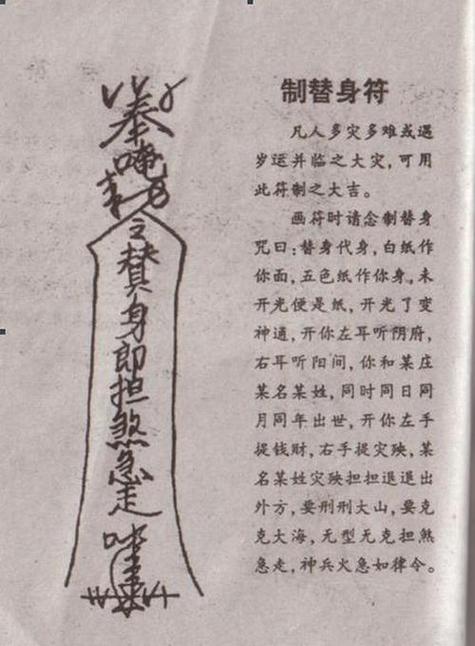 奉
唵
令
替身即担煞急走
制替身符
凡人多灾多难或遇
岁运并临之大灾，可用
此符制之大吉。
画符时请念制替身
咒曰：替身代身，白纸作
你面，五色纸作你身，未
开光便是纸，开光了变
神通，开你左耳听阴府，
右耳听阳间，你和某庄
某名某姓，同时同日同
月同年出世，开你左手
提钱财，右手提灾殃，某
名某姓灾殃担担退退出
外方，要刑刑大山，要克
克大海，无型无克担煞
急走，神兵火急如律令。